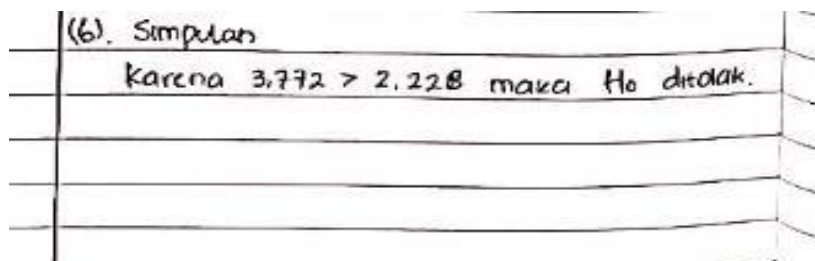 (6). Simpulan
Karena 3,772 > 2,228 maka Ho ditolak.